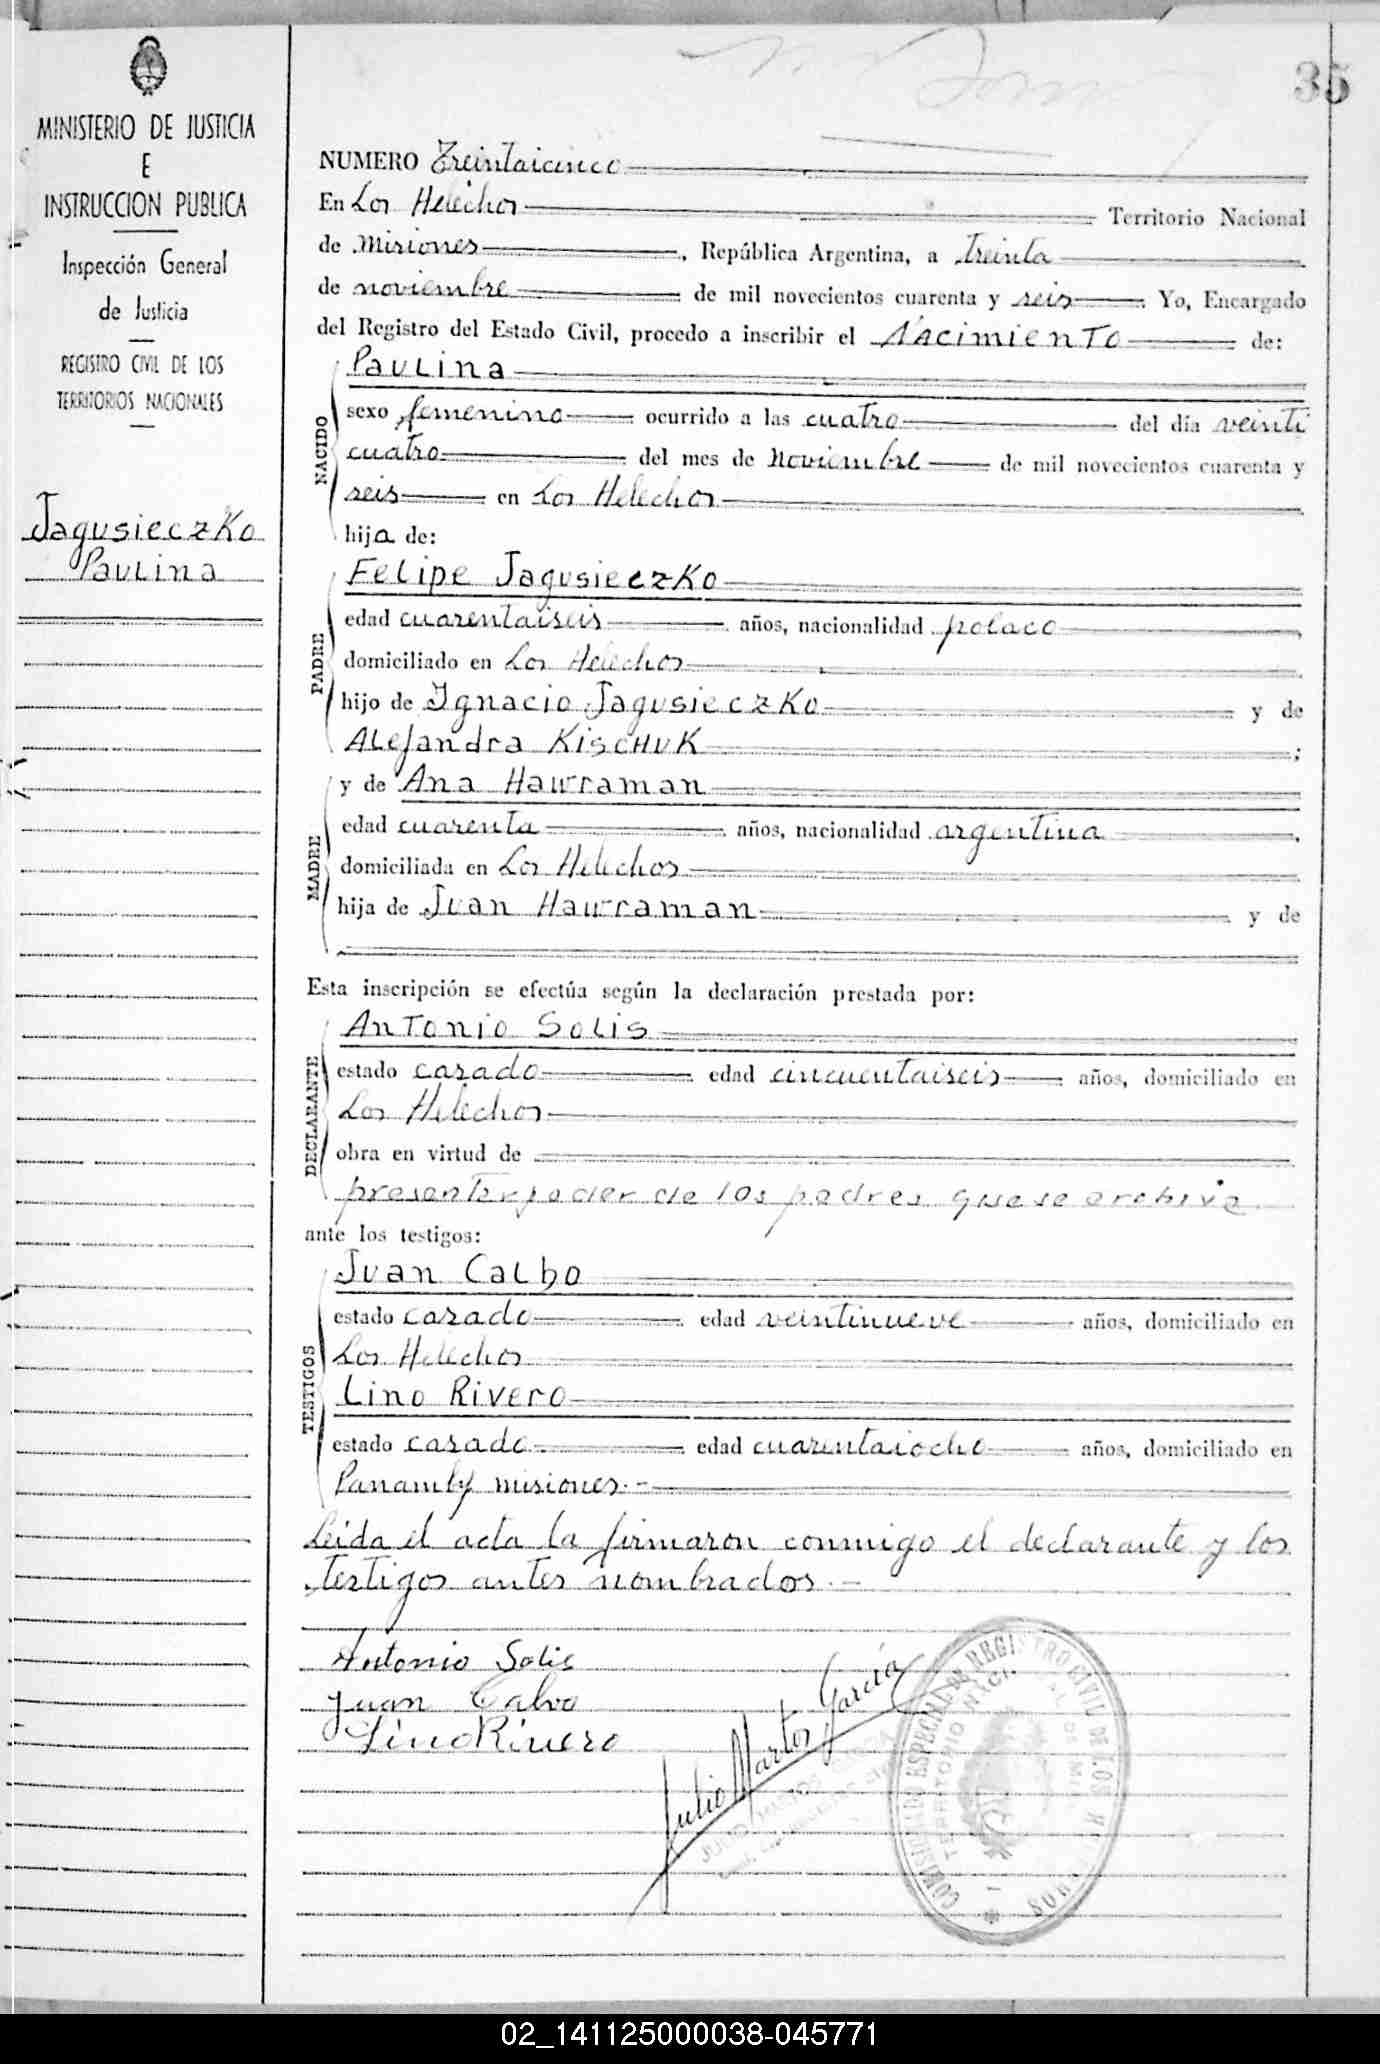 35
MINISTERIO DE JUSTICIA
E
INSTRUCCION PUBLICA
Inspección General
de Justicia
REGISTRO CIVIL DE LOS
TERRITORIOS NACIONALES
Jagusieczko
Paulina
NUMERO Treintaicinco
En Los Helechos Territorio Nacional
de Misiones, República Argentina, a treinta
de noviembre de mil novecientos cuarenta y seis Yo, Encargado
del Registro del Estado Civil, procedo a inscribir el Nacimiento de:
Paulina
NACIDO
sexo femenino ocurrido a las cuatro del día veinti
cuatro del mes de Noviembre de mil novecientos cuarenta y
seis en Los Helechos
hija de:
Felipe Jagusieczko
PADRE
edad cuarentaiseis años, nacionalidad polaco
domiciliado en Los Helechos
hijo de Ignacio Jagusieczko y de
Alejandra Kischuk;
y de Ana Hawraman
MADRE
edad cuarenta años, nacionalidad argentina
domiciliada en Los Helechos
hija de Juan Hawraman y de
Esta inscripción se efectúa según la declaración prestada por:
Antonio Solis
DECLARANTE
estado casado edad cincuentaiseis años, domiciliado en
Los Helechos
obra en virtud de
presentar poder de los padres que se archiva
ante los testigos:
Juan Calbo
TESTIGOS
estado casado edad veintinueve años, domiciliado en
Los Helechos
Lino Rivero
estado casado edad cuarentaiocho años, domiciliado en
Panamby misiones.-
Leida el acta la firmaron conmigo el declarante y los
testigos antes nombrados.-
Antonio Solis
Juan Calvo
Lino Rivero
Julio Martos García
02_141125000038-045771